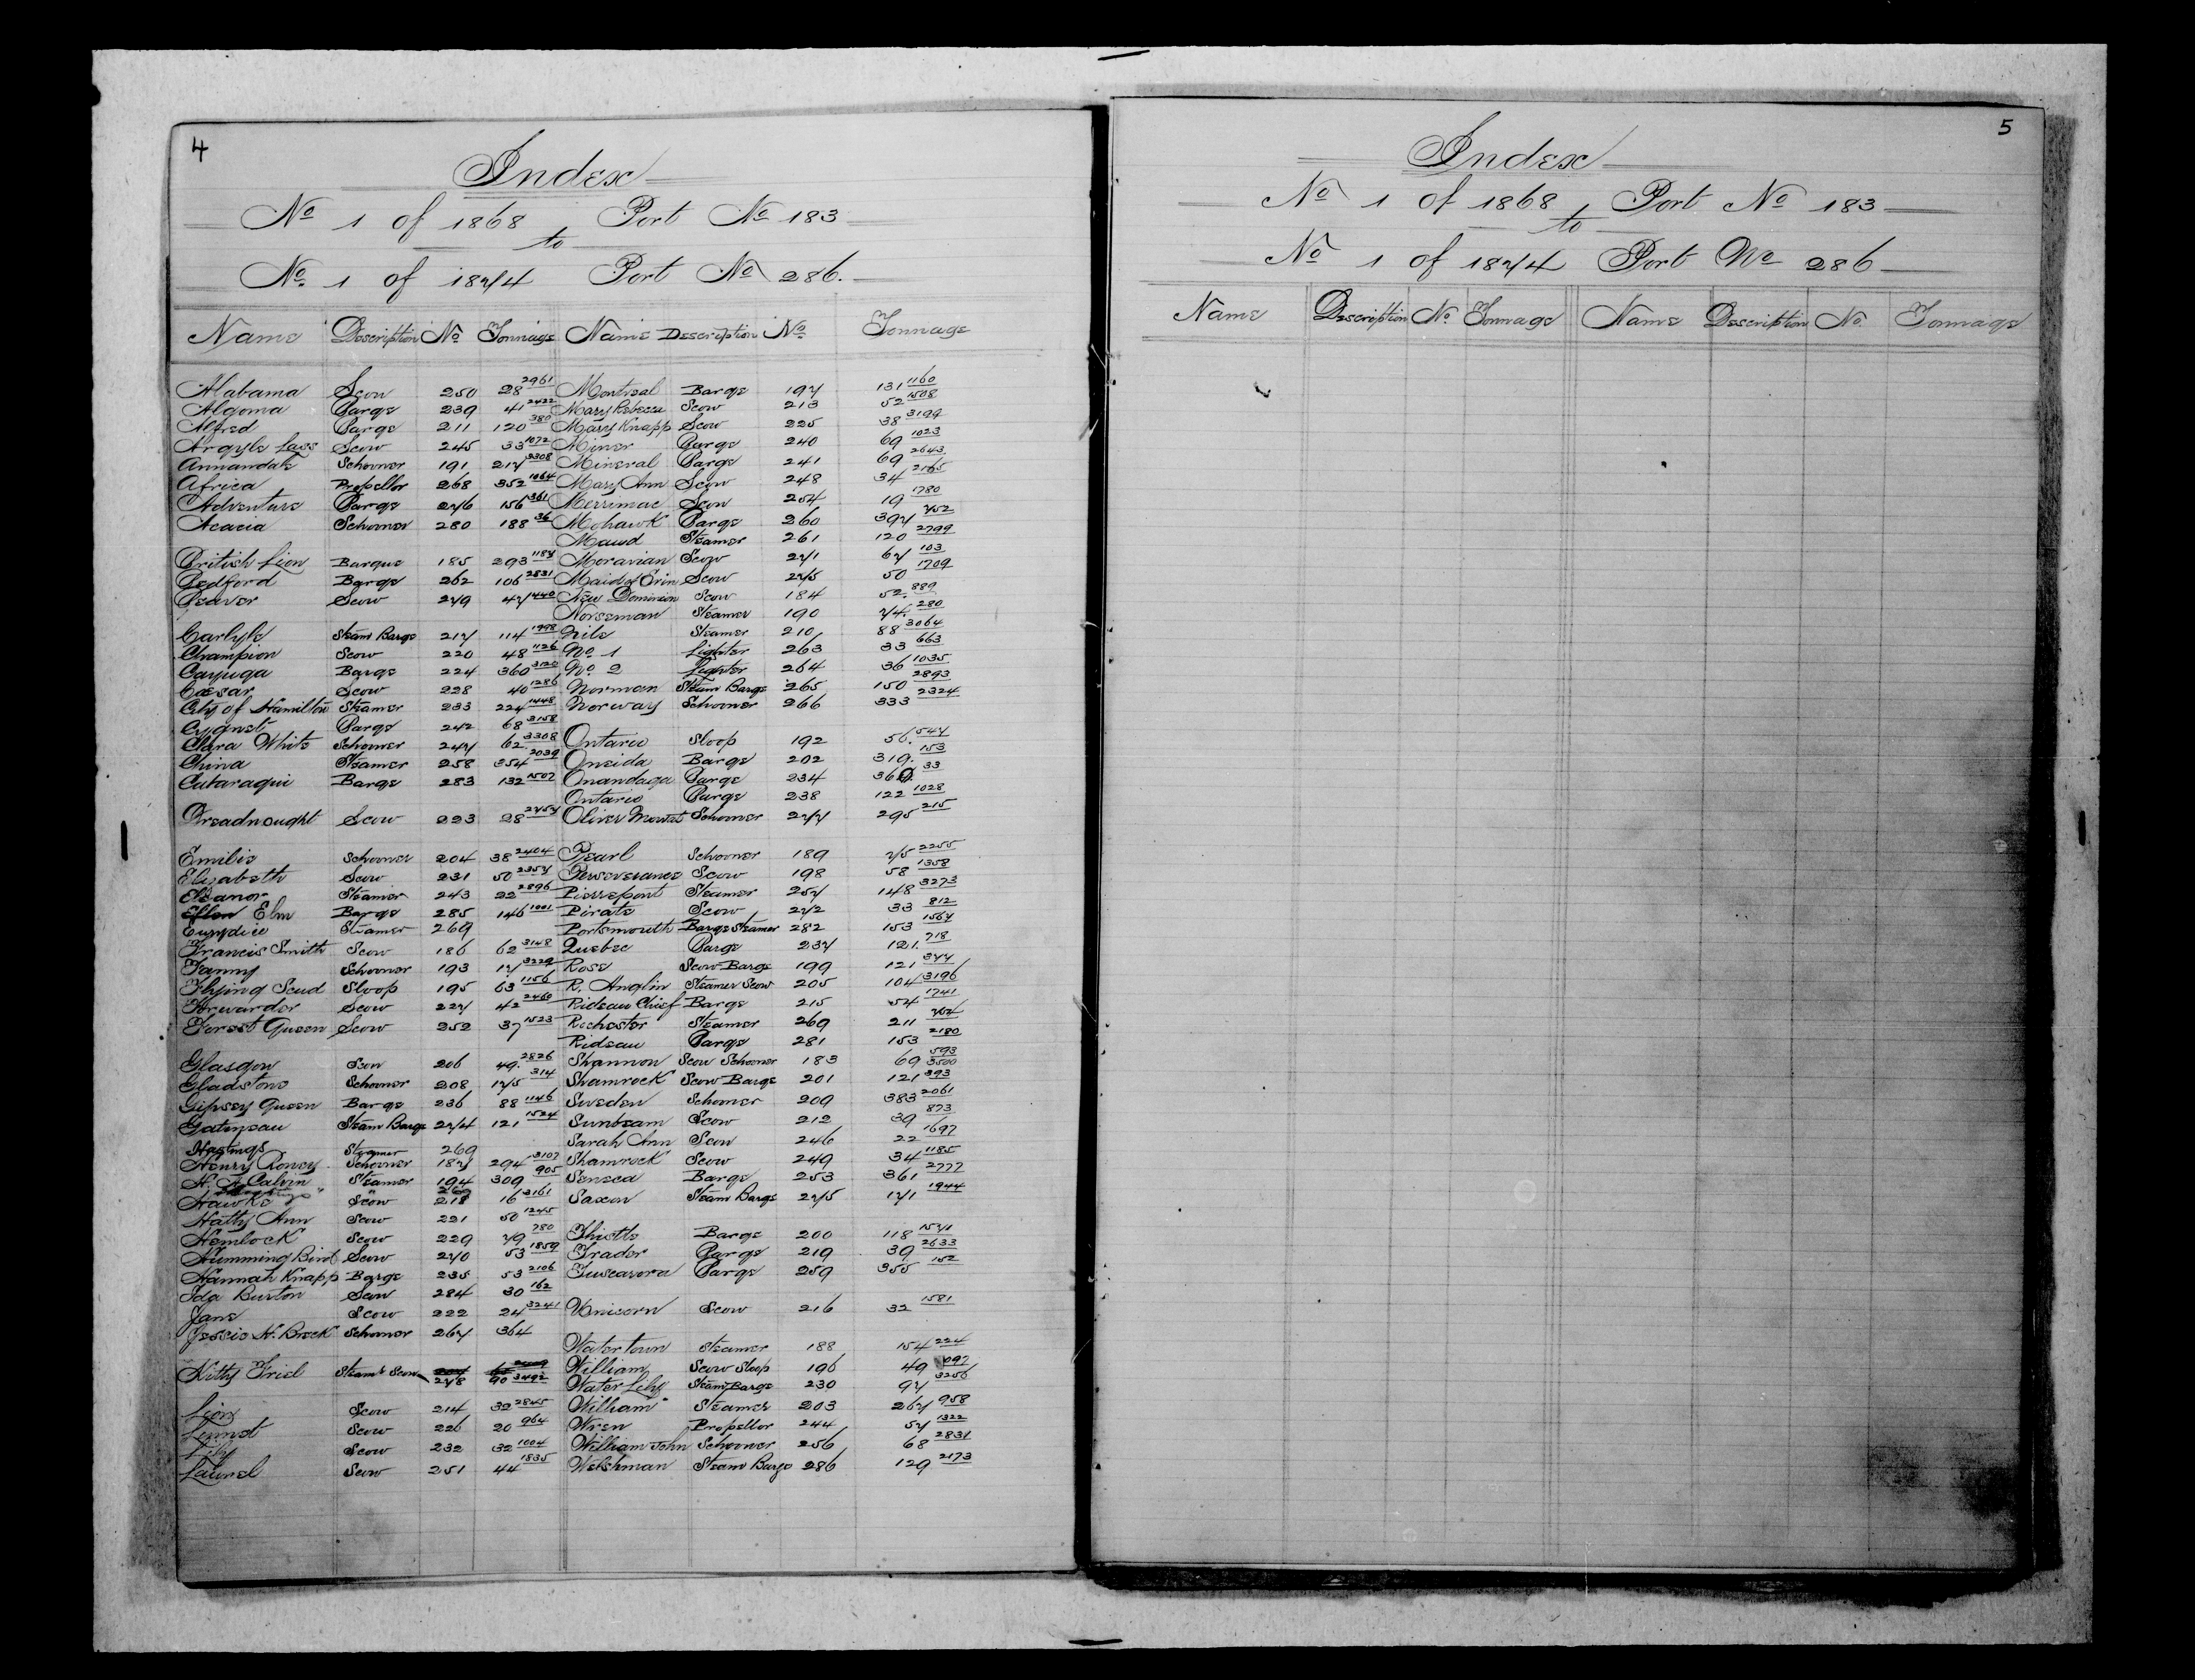 4
Index
No 1 of 1868 Port No 183
to
No 1 of 1874 Port No 286.
Name Description No Tonnage Name Description No Tonnage
Alabama Scow 250 28 2961 Montreal Barge 197 131 1160
Algoma Barge 239 41 2422 Mary Rebecca Scow 213 52 1508
Alfred Barge 211 120 380 Mary Knapp Scow 225 38 3199
Argyle Lass Scow 245 33 1072 Miner Barge 240 69 1023
Annandale Schooner 191 217 2308 Mineral Barge 241 69 2643
Africa Propellor 268 352 1064 Mary Ann Scow 248 34 2165
Adventure Barge 276 156 361 Merrimac Scow 254 19 1780
Acacia Schooner 280 188 36 Mohawk Barge 260 397 752
Maud Steamer 261 120 2799
British Lion Barque 185 293 1187 Moravian Scow 271 67 103
Bedford Barge 262 106 2831 Maid of Erin Scow 275 50 1709
Beaver Scow 279 47 1440 New Dominion Scow 184 52. 889
Norseman Steamer 190 74. 280
Carlyle Steam Barge 217 114 1998 Nile Steamer 210 88 3064
Champion Scow 220 48 1126 No. 1 Lighter 263 33 663
Cayuga Barge 224 360 3120 No. 2 Lighter 264 36 1035
Cæsar Scow 228 40 1286 Norman Steam Barge 265 150 2893
City of Hamilton Steamer 233 224 1448 Norway Schooner 266 333 2324
Cygnet Barge 242 68 3158
Clara White Schooner 247 62. 3308 Ontario Sloop 192 56. 547
China Steamer 258 354 2039 Oneida Barge 202 319. 153
Cataraqui Barge 283 132 1507 Onandaga Barge 234 360. 33
Ontario Barge 238 122 1028
Dreadnought Scow 223 28 2757 Oliver Mowat Schooner 277 295 215
Emilie Schooner 204 38 2404 Pearl Schooner 189 75 2255
Elizabeth Scow 231 50 2357 Perseverance Scow 198 58 1358
Eleanor Steamer 243 22 2896 Pierrepont Steamer 257 148 3273
Ellen Elm Barge 285 146 1001 Pirate Scow 272 33 812
Eurydice Steamer 269 Portsmouth Barge Steamer 282 153 1567
Francis Smith Scow 186 62 3148 Quebec Barge 237 121. 718
Fanny Schooner 193 17 3229 Rose Scow Barge 199 121 377
Flying Scud Sloop 195 63 1156 R. Anglin Steamer Scow 205 104 3196
Forwarder Scow 227 42 2460 Rideau Chief Barge 215 54 1741
Forest Queen Scow 252 37 1523 Rochester Steamer 269 211 754
Rideau Barge 281 153 2180
Glasgow Scow 206 49. 2826 Shannon Scow Schooner 183 69 593 3500
Gladstone Schooner 208 175 314 Shamrock Scow Barge 201 121 393
Gipsey Queen Barge 236 88 1146 Sweden Schooner 209 383 2061
Gatineau Steam Barge 274 121 1524 Sunbeam Scow 212 39 873
Hastings Steamer 269 Sarah Ann Scow 246 22 1697
Henry Roney Schooner 187 294 3107 Shamrock Scow 249 34 1185
H. A. Calvin Steamer 194 309 905 Seneca Barge 253 361 2777
Hawke Scow 218 16 3161 Saxon Steam Barge 275 171 1944
Hatty Ann Scow 221 50 1245
Hemlock Scow 229 79 780 Thistle Barge 200 118 1571
Humming Bird Scow 270 53 1859 Trader Barge 219 39 2633
Hannah Knapp Barge 235 53 2106 Tuscarora Barge 259 355 152
Ida Burton Scow 284 30 162
Jane Scow 222 24 3241 Unicorn Scow 216 32 1581
Jessie H. Breck Schooner 267 364
Watertown Steamer 188 154 224
Kitty Friel Steamb Scow 278 90 3492 William Scow Sloop 196 49 1097
Water Lily Steam Barge 230 97 3256
Lion Scow 214 32 2845 William Steamer 203 267 958
Linnet Scow 226 20 964 Wren Propellor 244 57 1322
Lily Scow 232 32 1004 William John Schooner 256 68 2831
Laurel Scow 251 44 1835 Welshman Steam Barge 286 129 2173
5
Index
No 1 of 1868 Port No 183
to
No 1 of 1874 Port No 286
Name Description No Tonnage Name Description No. Tonnage